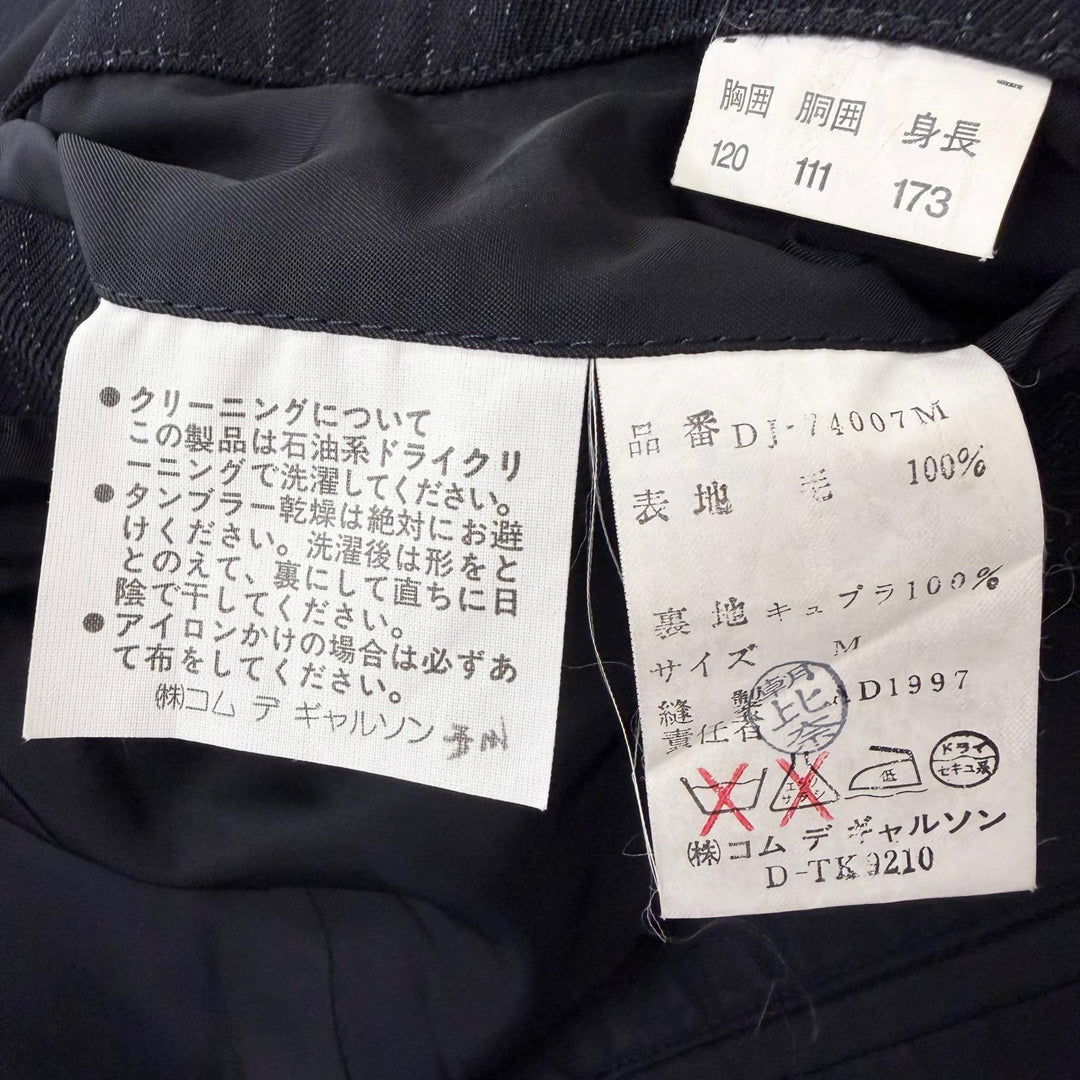 胸囲 胴囲 身長
120 111 173
●クリーニングについて
この製品は石油系ドライクリ
ーニングで洗濯してください。
●タンブラー乾燥は絶対にお避
けください。洗濯後は形をと
とのえて、裏にして直ちに日
陰で干してください。
●アイロンかけの場合は必ずあ
て布をしてください。
㈱コム デ ギャルソン
品番 DJ-74007M
表地 毛 100%
裏地 キュプラ100%
サイズ M
縫製 AD1997
責任者
朝比奈
エンソ
サラシ
低
ドライ
セキユ系
㈱コム デ ギャルソン
D-TK9210